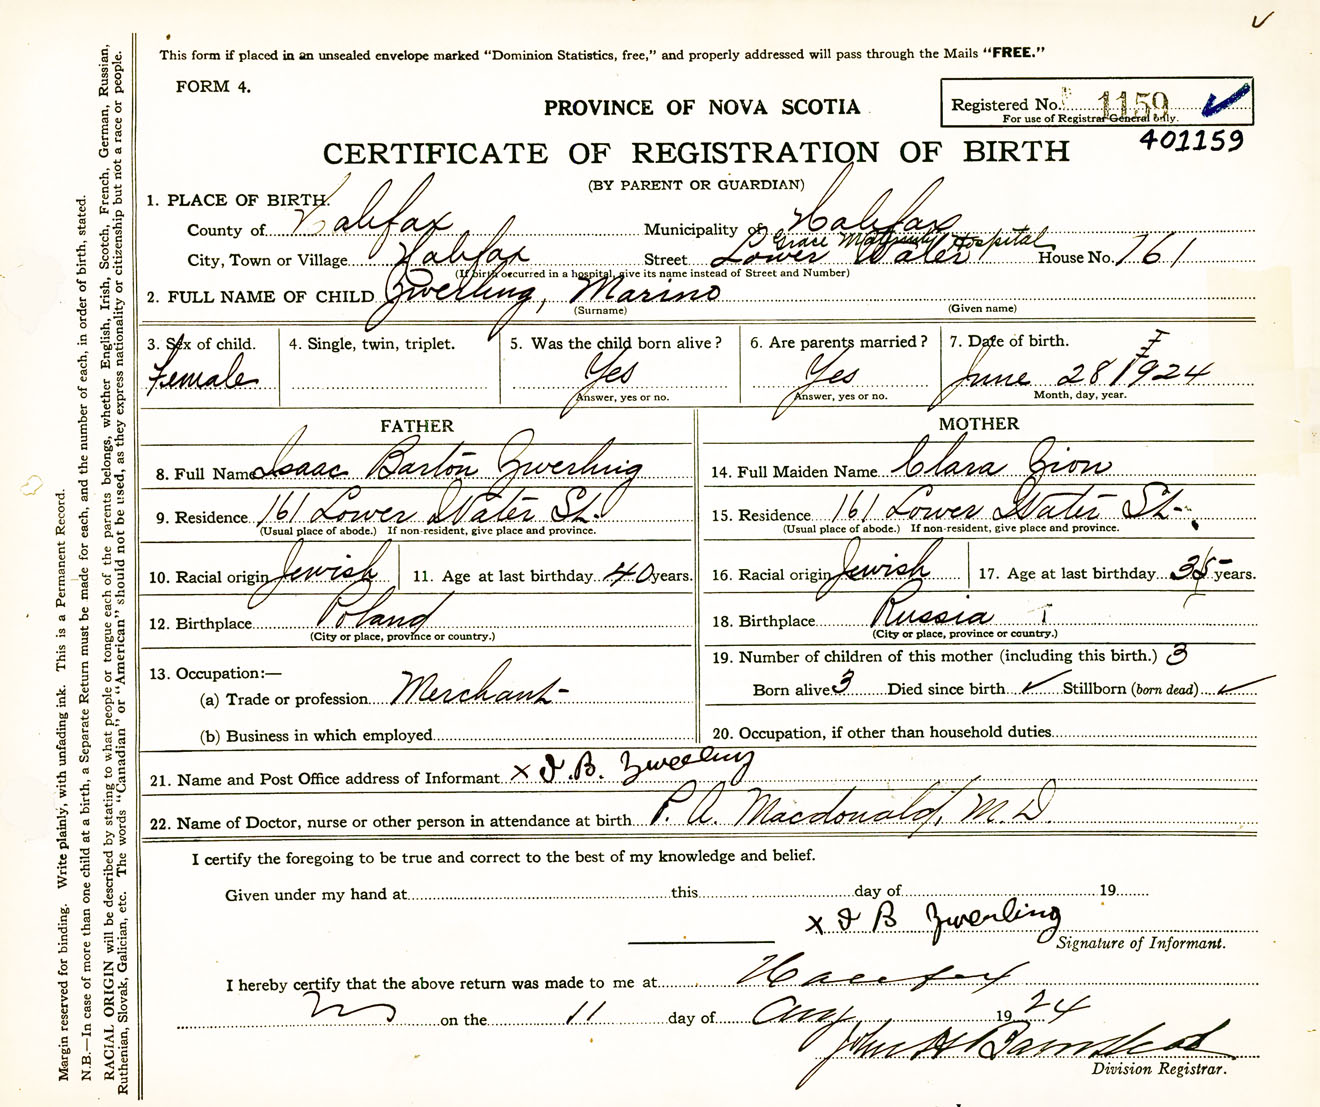 This form if placed in an unsealed envelope marked "Dominion Statistics, free," and properly addressed will pass through the Mails "FREE."
FORM 4.
PROVINCE OF NOVA SCOTIA
Registered No. 1159
For use of Registrar General only.
401159
CERTIFICATE OF REGISTRATION OF BIRTH
(BY PARENT OR GUARDIAN)
1. PLACE OF BIRTH.
County of Halifax Municipality of Halifax
Grace Maternity Hospital
City, Town or Village Halifax Street Lower Water House No. 161
(If birth occurred in a hospital, give its name instead of Street and Number)
2. FULL NAME OF CHILD Zwerling, Marino
(Surname) (Given name)
3. Sex of child. 4. Single, twin, triplet. 5. Was the child born alive? 6. Are parents married? 7. Date of birth.
Female Yes Yes June 28 1924
Answer, yes or no. Answer, yes or no. Month, day, year.
FATHER
8. Full Name Isaac Barton Zwerling
9. Residence 161 Lower Water St.
(Usual place of abode.) If non-resident, give place and province.
10. Racial origin Jewish 11. Age at last birthday 40 years.
12. Birthplace Poland
(City or place, province or country.)
13. Occupation:—
(a) Trade or profession Merchant
(b) Business in which employed
MOTHER
14. Full Maiden Name Clara Zion
15. Residence 161 Lower Water St.
(Usual place of abode.) If non-resident, give place and province.
16. Racial origin Jewish 17. Age at last birthday 35 years.
18. Birthplace Russia
(City or place, province or country.)
19. Number of children of this mother (including this birth.) 3
Born alive 3 Died since birth ✓ Stillborn (born dead) ✓
20. Occupation, if other than household duties
21. Name and Post Office address of Informant x I. B. Zwerling
22. Name of Doctor, nurse or other person in attendance at birth P. A. Macdonald, M.D.
I certify the foregoing to be true and correct to the best of my knowledge and belief.
Given under my hand at this day of 19
x I B Zwerling
Signature of Informant.
I hereby certify that the above return was made to me at Halifax
NS on the 11 day of Aug 1924
John H Barnstead
Division Registrar.
Margin reserved for binding. Write plainly, with unfading ink. This is a Permanent Record.
N.B.—In case of more than one child at a birth, a Separate Return must be made for each, and the number of each, in order of birth, stated.
RACIAL ORIGIN will be described by stating to what people or tongue each of the parents belongs, whether English, Irish, Scotch, French, German, Russian,
Ruthenian, Slovak, Galician, etc. The words "Canadian" or "American" should not be used, as they express nationality or citizenship but not a race or people.